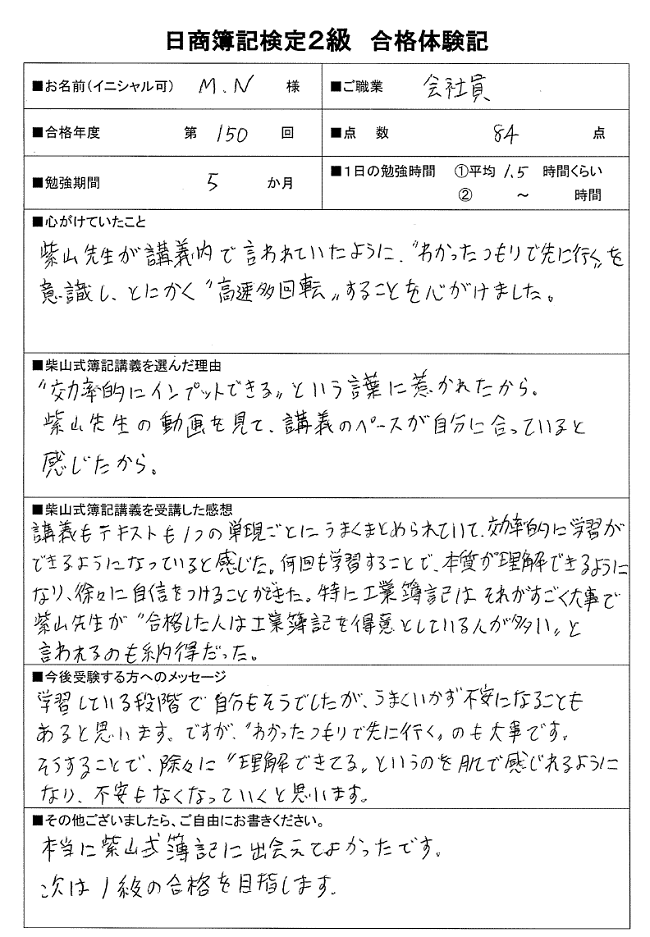 日商簿記検定2級 合格体験記
■お名前(イニシャル可) M.N 様 ■ご職業 会社員
■合格年度 第 150 回 ■点 数 84 点
■勉強期間 5 か月 ■1日の勉強時間 ①平均 1.5 時間くらい
② ~ 時間
■心がけていたこと
紫山先生が講義内で言われていたように、“わかったつもりで先に行く”を
意識し、とにかく“高速多回転”することを心がけました。
■柴山式簿記講義を選んだ理由
“効率的にインプットできる”という言葉に惹かれたから。
紫山先生の動画を見て、講義のペースが自分に合っていると
感じたから。
■柴山式簿記講義を受講した感想
講義もテキストも1つの単現ごとにうまくまとめられていて、効率的に学習が
できるようになっていると感じた。何回も学習することで、本質が理解できるように
なり、徐々に自信をつけることができた。特に工業簿記はそれがすごく大事で
紫山先生が“合格した人は工業簿記を得意としている人が多い”と
言われるのも納得だった。
■今後受験する方へのメッセージ
学習している段階で自分もそうでしたが、うまくいかず不安になることも
あると思います。ですが、“わかったつもりで先に行く”のも大事です。
そうすることで、除々に“理解できてる”というのを肌で感じれるように
なり、不安もなくなっていくと思います。
■その他ございましたら、ご自由にお書きください。
本当に紫山式簿記に出会えてよかったです。
次は1級の合格を目指します。